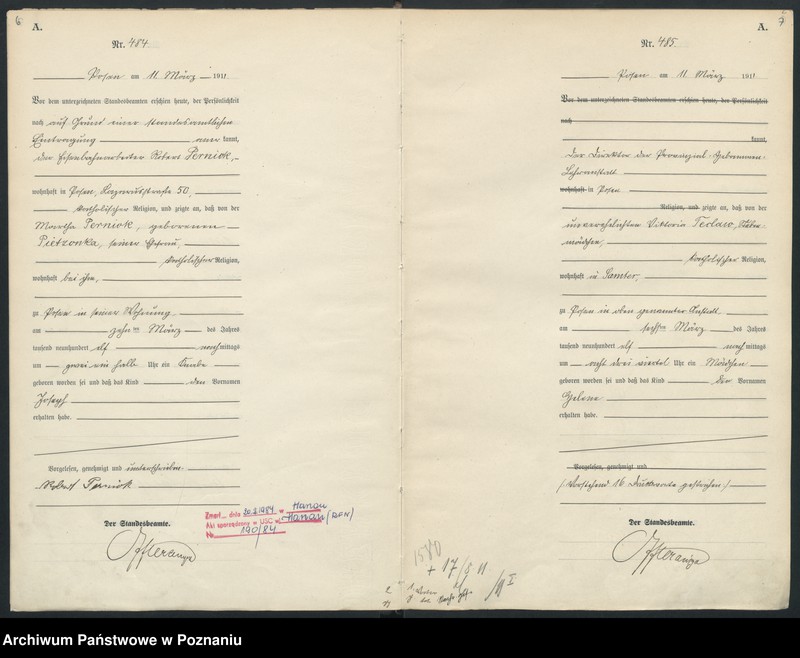 6
A.
Nr. 484.
Posen am 11. März 1911
Vor dem unterzeichneten Standesbeamten erschien heute, der Persönlichkeit
nach auf Grund einer standesamtlichen
Eintragung anerkannt,
der Eisenbahnarbeiter Robert Perniok,
wohnhaft in Posen, 50,
katholischer Religion, und zeigte an, daß von der
Martha Perniok, geborenen
Pietzonka, seiner Ehefrau,
katholischer Religion,
wohnhaft bei ihm,
zu Posen in seiner Wohnung
am zehnten März des Jahres
tausend neunhundert elf nachmittags
um zwei ein halb Uhr ein Knabe
geboren worden sei und daß das Kind den Vornamen
Joseph
erhalten habe.
Vorgelesen, genehmigt und unterschrieben:
Robert Perniok
Der Standesbeamte.
Zmarł dnia 1984 w Hanau
Akt sporządzony w USC w Hanau (RFN)
Nr 190/84
7
A.
Nr. 485.
Posen am 11. März 1911
Vor dem unterzeichneten Standesbeamten erschien heute, der Persönlichkeit
nach
kannt,
Der Direktor der Provinzial-Hebammen
Lehranstalt
wohnhaft in Posen
Religion, und zeigte an, daß von der
unverehelichten Viktoria
mädchen,
katholischer Religion,
wohnhaft in Samter,
zu Posen in oben genannter Anstalt
am sechsten März des Jahres
tausend neunhundert elf nachmittags
um acht drei viertel Uhr ein Mädchen
geboren worden sei und daß das Kind den Vornamen
Helene
erhalten habe.
Vorgelesen, genehmigt und
(Vorstehend 16 Druckworte gestrichen.)
Der Standesbeamte.
1580
Archiwum Państwowe w Poznaniu